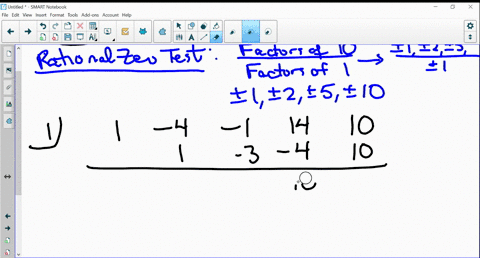 Untitled * - SMART Notebook
File Edit View Insert Format Tools Add-ons Account Help
Rational Zero Test: Factors of 10 → ±1, ±2, ±5,
Factors of 1 ±1
±1, ±2, ±5, ±10
1) 1 -4 -1 14 10
1 -3 -4 10